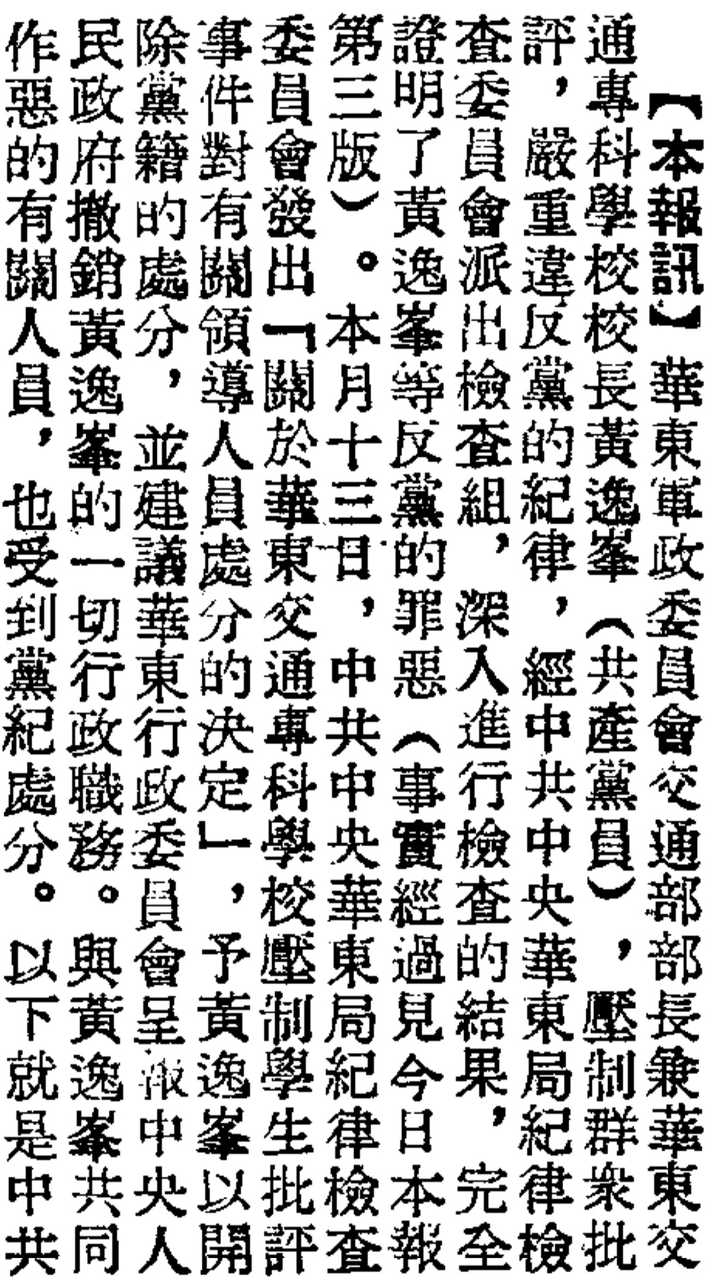 【本報訊】華東軍政委員會交通部部長兼華東交
通專科學校校長黃逸峯（共產黨員），壓制群衆批
評，嚴重違反黨的紀律，經中共中央華東局紀律檢
查委員會派出檢查組，深入進行檢查的結果，完全
證明了黃逸峯等反黨的罪惡（事實經過見今日本報
第三版）。本月十三日，中共中央華東局紀律檢查
委員會發出「關於華東交通專科學校壓制學生批評
事件對有關領導人員處分的決定」，予黃逸峯以開
除黨籍的處分，並建議華東行政委員會呈報中央人
民政府撤銷黃逸峯的一切行政職務。與黃逸峯共同
作惡的有關人員，也受到黨紀處分。以下就是中共